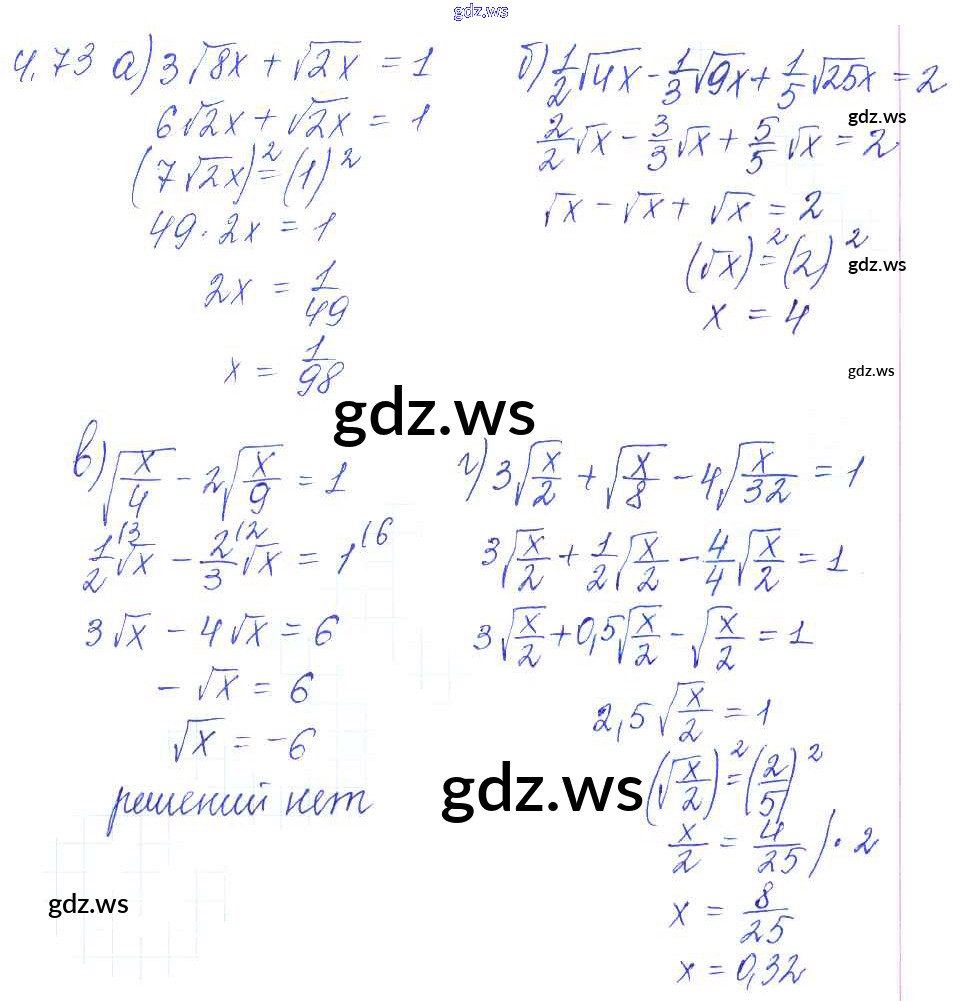 gdz.ws
4.73 а) 3√8x + √2x = 1
6√2x + √2x = 1
(7√2x)² = (1)²
49 · 2x = 1
2x = 1/49
x = 1/98
б) 1/2 √4x - 1/3 √9x + 1/5 √25x = 2
gdz.ws
2/2 √x - 3/3 √x + 5/5 √x = 2
√x - √x + √x = 2
(√x)² = (2)²
gdz.ws
x = 4
gdz.ws
gdz.ws
в) √(x/4) - 2√(x/9) = 1
1/2 |3 √x - 2/3 |2 √x = 1 |6
3√x - 4√x = 6
-√x = 6
√x = -6
решений нет
г) 3√(x/2) + √(x/8) - 4√(x/32) = 1
3√(x/2) + 1/2 √(x/2) - 4/4 √(x/2) = 1
3√(x/2) + 0,5√(x/2) - √(x/2) = 1
2,5√(x/2) = 1
gdz.ws
(√(x/2))² = (2/5)²
x/2 = 4/25 ) · 2
x = 8/25
x = 0,32
gdz.ws
gdz.ws